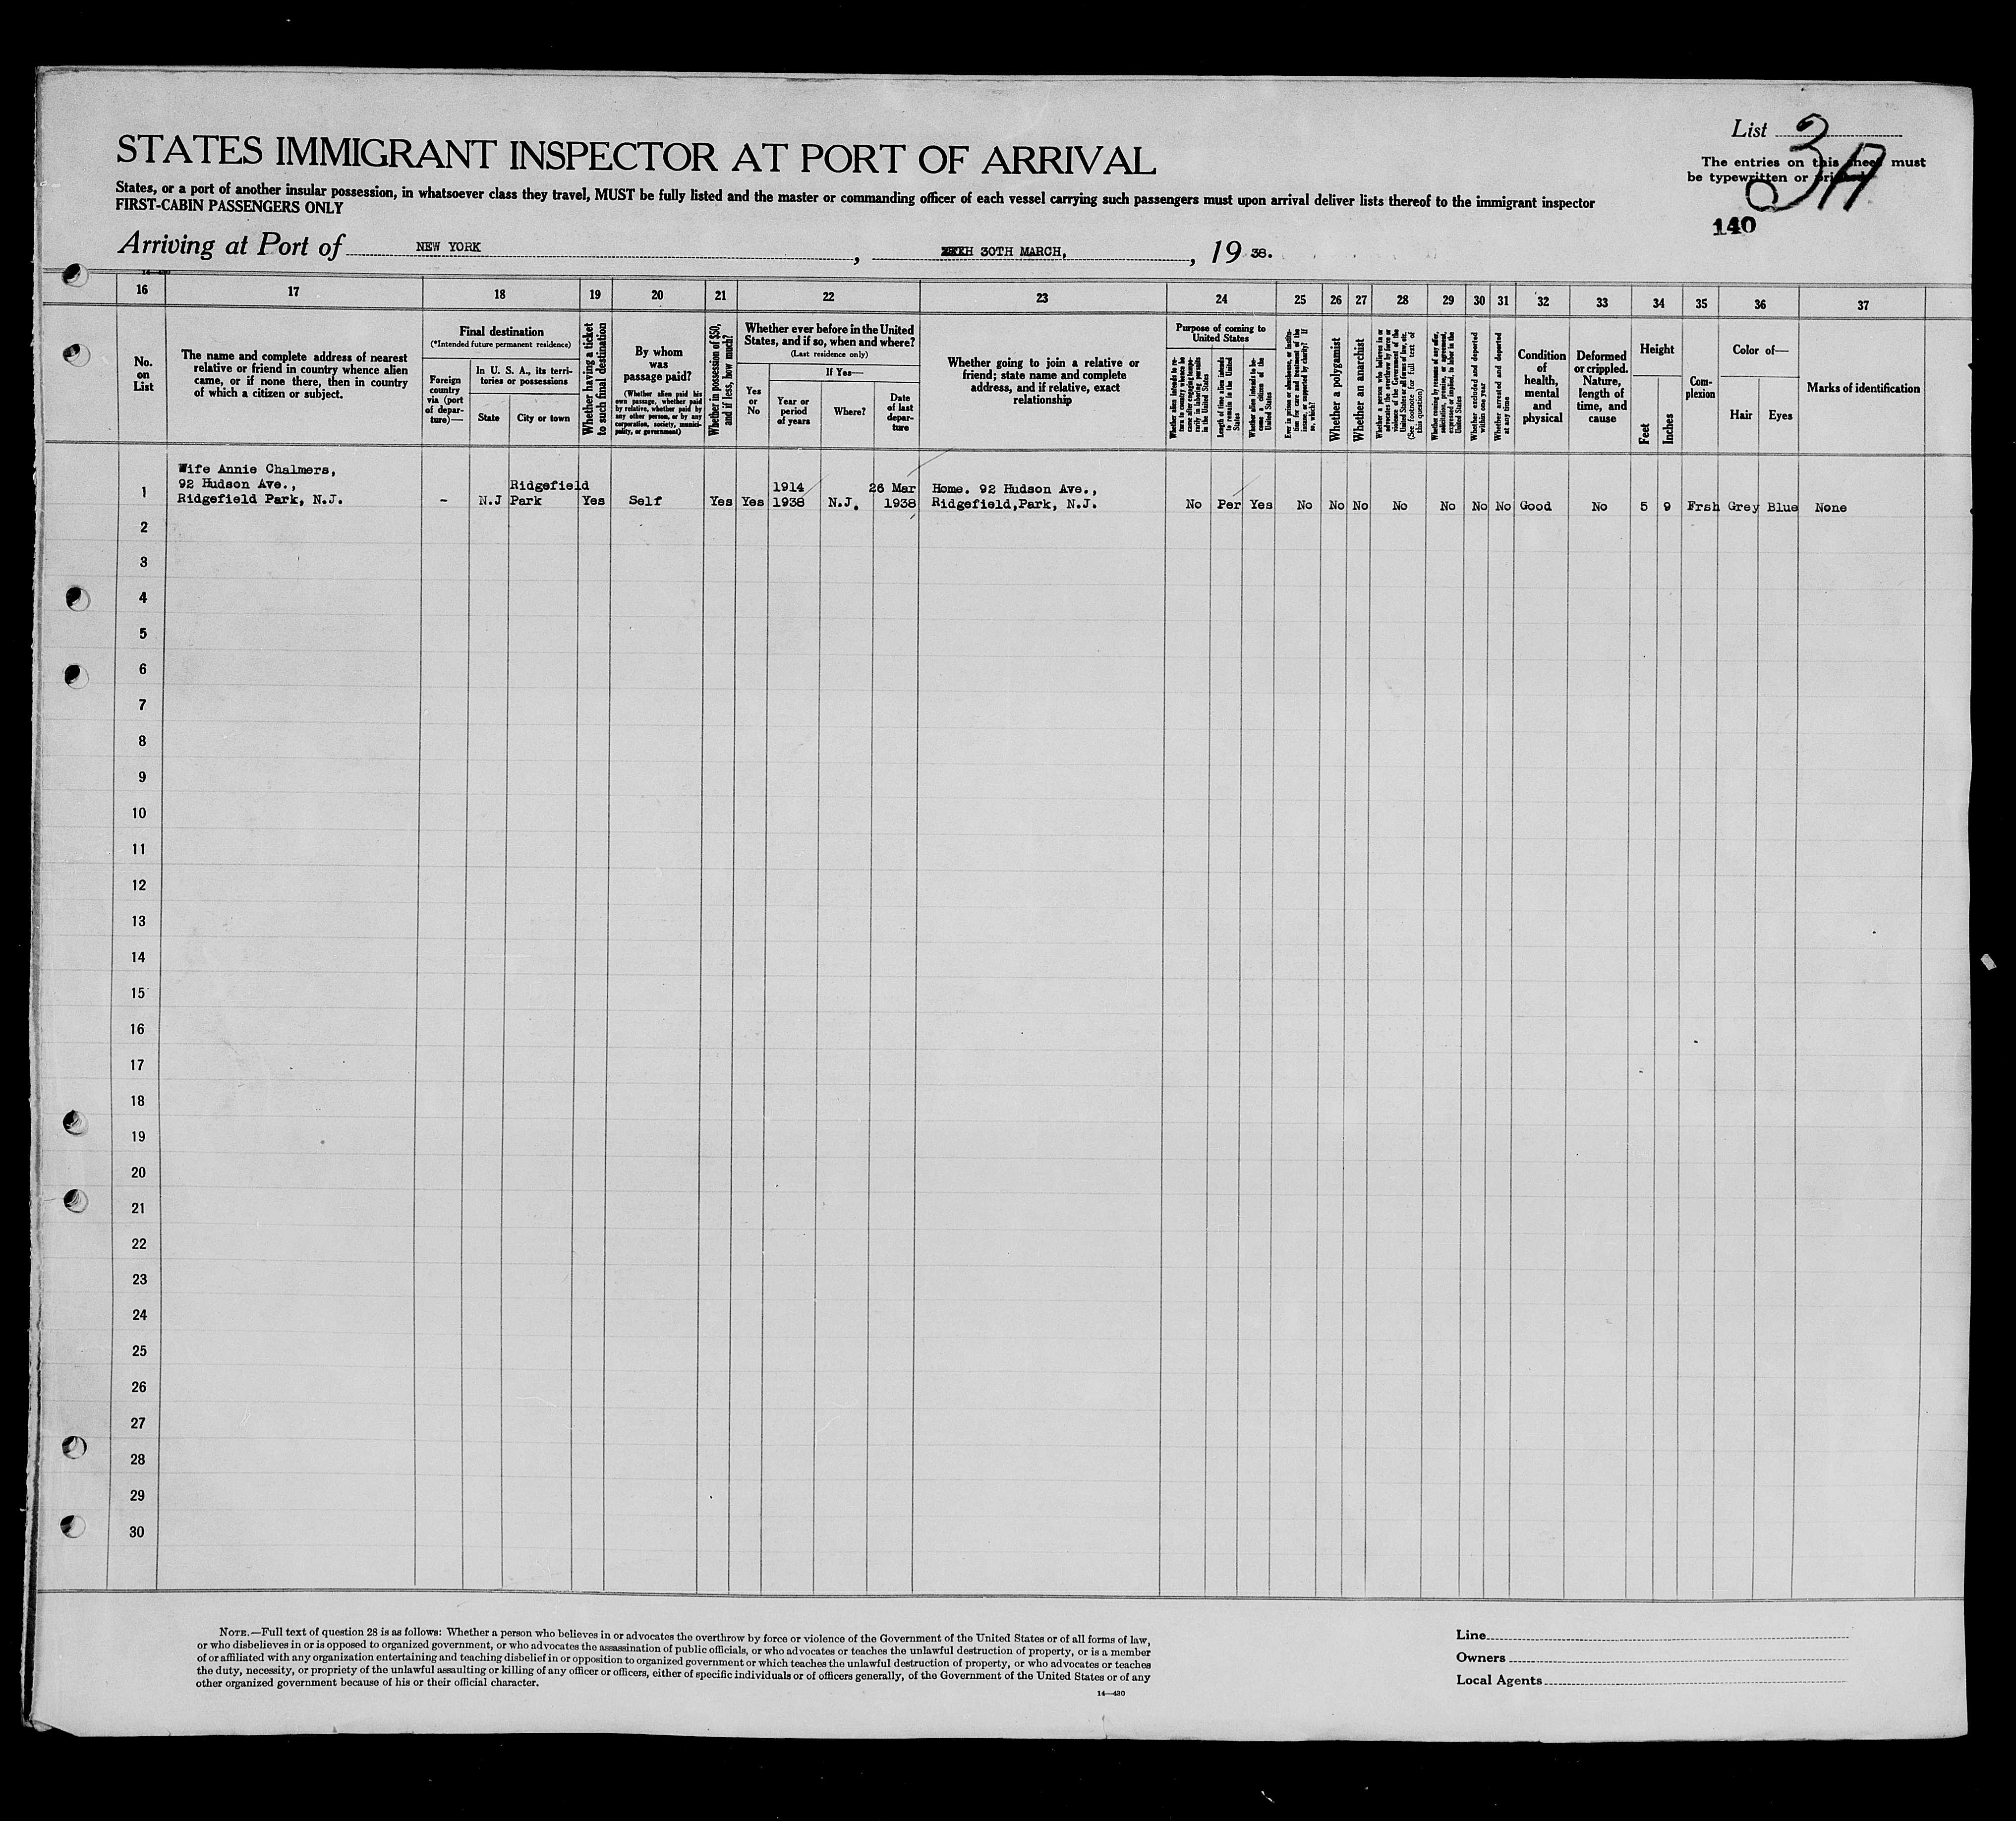 List 3A
STATES IMMIGRANT INSPECTOR AT PORT OF ARRIVAL
The entries on this sheet must
be typewritten or printed
States, or a port of another insular possession, in whatsoever class they travel, MUST be fully listed and the master or commanding officer of each vessel carrying such passengers must upon arrival deliver lists thereof to the immigrant inspector
FIRST-CABIN PASSENGERS ONLY
140
Arriving at Port of NEW YORK, 30TH MARCH, 19 38.
14—430
16 17 18 19 20 21 22 23 24 25 26 27 28 29 30 31 32 33 34 35 36 37
No.
on
List
The name and complete address of nearest
relative or friend in country whence alien
came, or if none there, then in country
of which a citizen or subject.
Final destination
(*Intended future permanent residence)
Foreign
country
via (port
of depar-
ture)—
In U. S. A., its terri-
tories or possessions
State
City or town
Whether having a ticket
to such final destination
By whom
was
passage paid?
(Whether alien paid his
own passage, whether paid
by relative, whether paid by
any other person, or by any
corporation, society, munici-
pality, or government)
Whether in possession of $50,
and if less, how much?
Whether ever before in the United
States, and if so, when and where?
(Last residence only)
Yes
or
No
If Yes—
Year or
period
of years
Where?
Date
of last
depar-
ture
Whether going to join a relative or
friend; state name and complete
address, and if relative, exact
relationship
Purpose of coming to
United States
Whether alien intends to re-
turn to country whence he
came after engaging tempo-
rarily in laboring pursuits
in the United States
Length of time alien intends
to remain in the United
States
Whether alien intends to be-
come a citizen of the
United States
Ever in prison or almshouse, or institu-
tion for care and treatment of the
insane, or supported by charity? If
so, which?
Whether a polygamist
Whether an anarchist
Whether a person who believes in or
advocates the overthrow by force or
violence of the Government of the
United States or all forms of law, etc.
(See footnote for full text of
this question)
Whether coming by reason of any offer,
solicitation, promise, or agreement,
expressed or implied, to labor in the
United States
Whether excluded and deported
within one year
Whether arrested and deported
at any time
Condition
of
health,
mental
and
physical
Deformed
or crippled.
Nature,
length of
time, and
cause
Height
Feet
Inches
Com-
plexion
Color of—
Hair
Eyes
Marks of identification
Wife Annie Chalmers,
92 Hudson Ave.,
Ridgefield Park, N.J.
1 – N.J Ridgefield Park Yes Self Yes Yes 1914 1938 N.J. 26 Mar 1938 Home. 92 Hudson Ave.,
Ridgefield,Park, N.J. No Per Yes No No No No No No No Good No 5 9 Frsh Grey Blue None
2
3
4
5
6
7
8
9
10
11
12
13
14
15
16
17
18
19
20
21
22
23
24
25
26
27
28
29
30
NOTE.—Full text of question 28 is as follows: Whether a person who believes in or advocates the overthrow by force or violence of the Government of the United States or of all forms of law,
or who disbelieves in or is opposed to organized government, or who advocates the assassination of public officials, or who advocates or teaches the unlawful destruction of property, or is a member
of or affiliated with any organization entertaining and teaching disbelief in or opposition to organized government or which teaches the unlawful destruction of property, or who advocates or teaches
the duty, necessity, or propriety of the unlawful assaulting or killing of any officer or officers, either of specific individuals or of officers generally, of the Government of the United States or of any
other organized government because of his or their official character.
14—430
Line
Owners
Local Agents